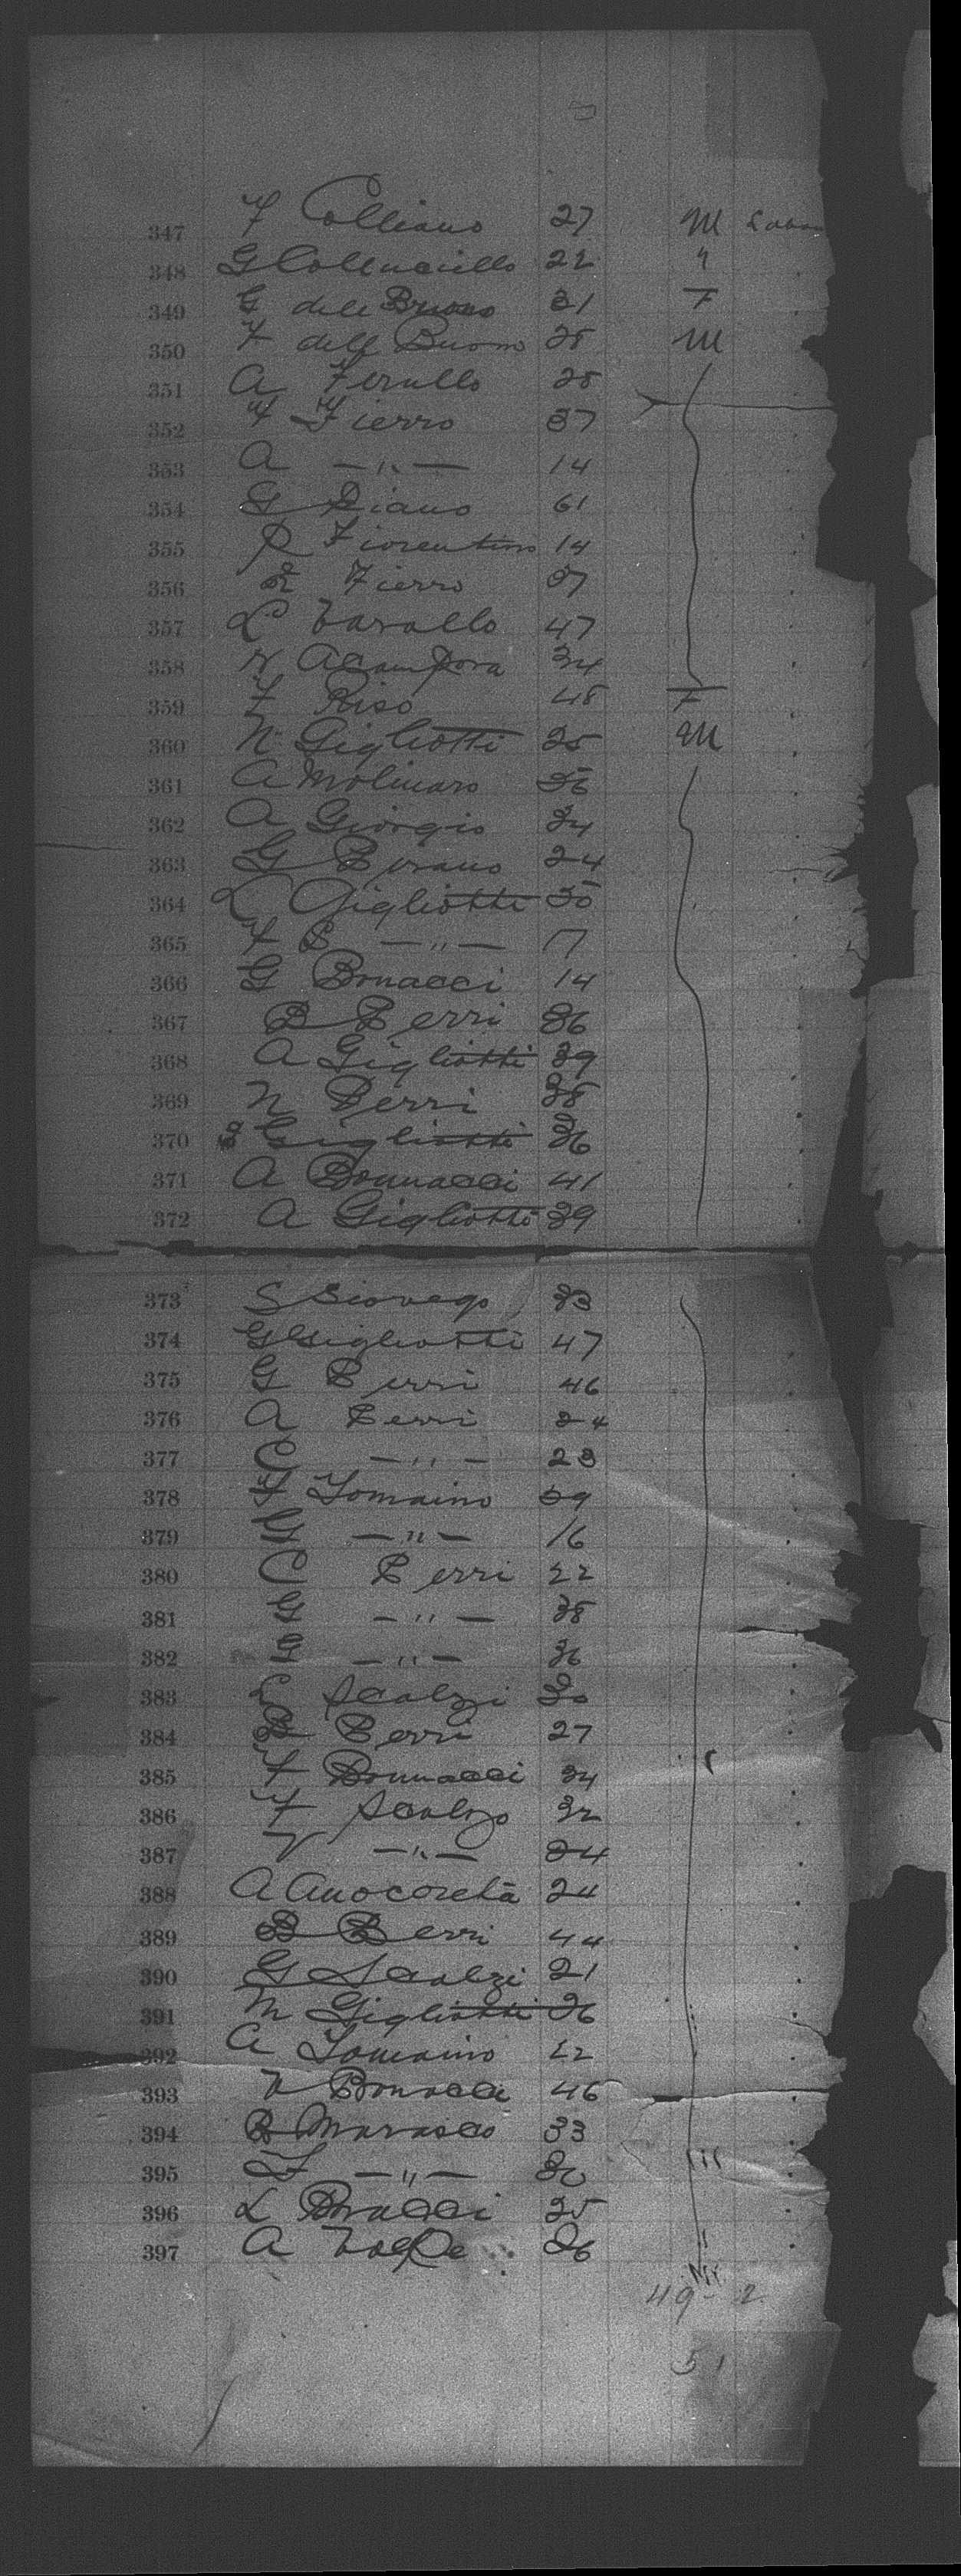 347 F Colliano 27 M Labor
348 G Collenaciello 22 "
349 G dell Buono 31 F
350 F dell Buono 28 M
351 A Ferullo 25
352 F Fierro 37
353 A — " — 14
354 G Diano 61
355 R Fiorentino 14
356 L Fierro 37
357 L Varallo 47
358 N Acampora 34
359 F Riso 48 F
360 N Gigliotti 25 M
361 A Molinaro 36
362 A Giorgio 34
363 G Perano 24
364 L Gigliotti 30
365 F S — " — 17
366 G Bonacci 14
367 B Perri 36
368 A Gigliotti 39
369 N Perri 38
370 S Gigliotti 36
371 A Bonnacci 41
372 A Gigliotti 39
373 S Siovago 33
374 G Gigliotti 47
375 G Perri 46
376 A Perri 24
377 C — " — 23
378 F Tomaino 39
379 G — " — 16
380 C Perri 22
381 G — " — 38
382 G — " — 36
383 L Scalzi 30
384 B Perri 27
385 F Bonnacci 34
386 F Scalzo 32
387 V — " — 24
388 A Anocoreta 24
389 B Perri 44
390 G Scalzi 21
391 M Gigliotti 26
392 A Tomaino 22
393 V Bonacci 46
394 B Marasco 33
395 F — " — 30
396 L Bonacci 25
397 A Volpe 26
49 - 2
51